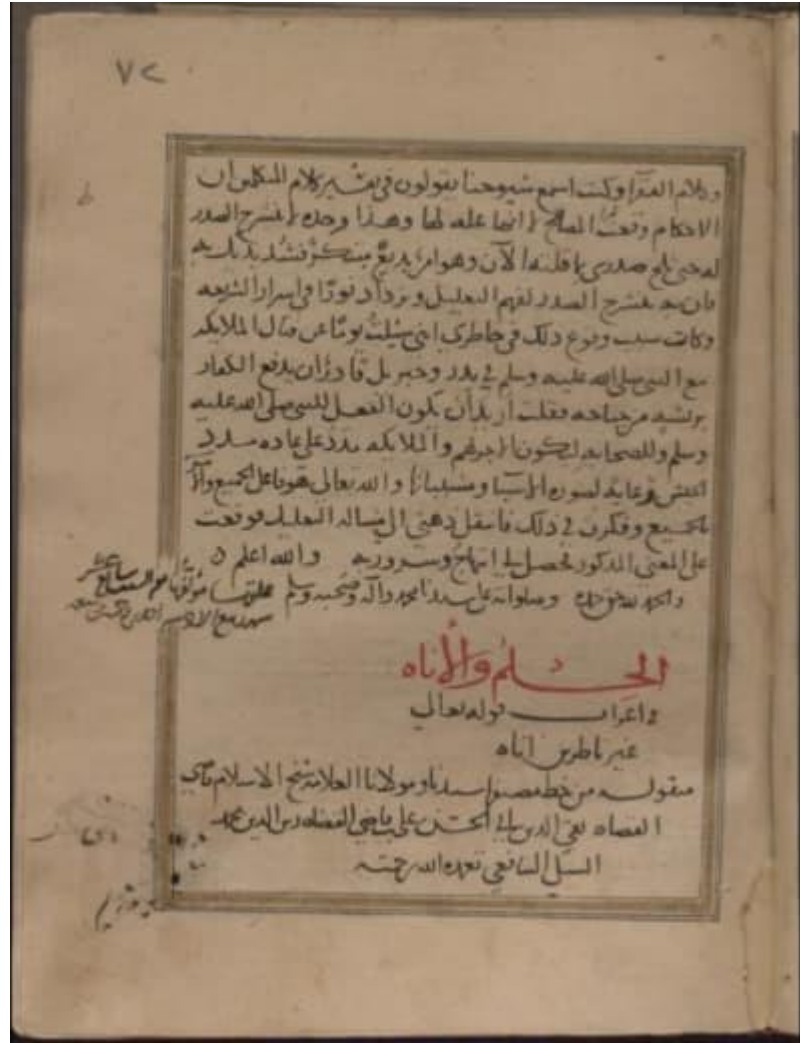 ٧٢
وكلام الفقهاء وكنت اسمع شيوخنا يقولون في تفسير كلام المتكلمين ان
الاحكام وقعت المصالح لا انها علة لها وهذا وحده لا ينشرح الصدر
له حتى صدري ما قلته الآن وهو امر بديع مبتكر فشد يديك به
فان به ينشرح الصدر لفهم التعليل ويزداد نورًا في اسرار الشريعه
وكان سبب وقوع ذلك في خاطري انني سئلت يومًا عن قتال الملايكه
مع النبي صلى الله عليه وسلم في بدر وجبريل قادر ان يدفع الكفار
بريشه من جناحه فقلت اريد أن يكون الفعل للنبي صلى الله عليه
وسلم وللصحابه ليكون اجرهم والملايكه مدد على عاده مدد
الجيش رعاية لصورة الاسباب ومسبباتها والله تعالى هو فاعل الجميع
الجميع وفكرت في ذلك فانتقل ذهني الى مساله التعليل فوقعت
على المعنى المذكور فحصل لي ابتهاج وسرور به والله اعلم
والحمد لله حق حمده وصلواته على سيدنا محمد وآله وصحبه وسلم
الحلم والأناه
في اعراب قوله تعالى
غير ناظرين اناه
منقوله من خط مصنفها سيدنا ومولانا العلامه شيخ الاسلام قاضي
القضاه تقي الدين ابي الحسن علي بن قاضي القضاه زين الدين
السبكي الشافعي تغمده الله برحمته